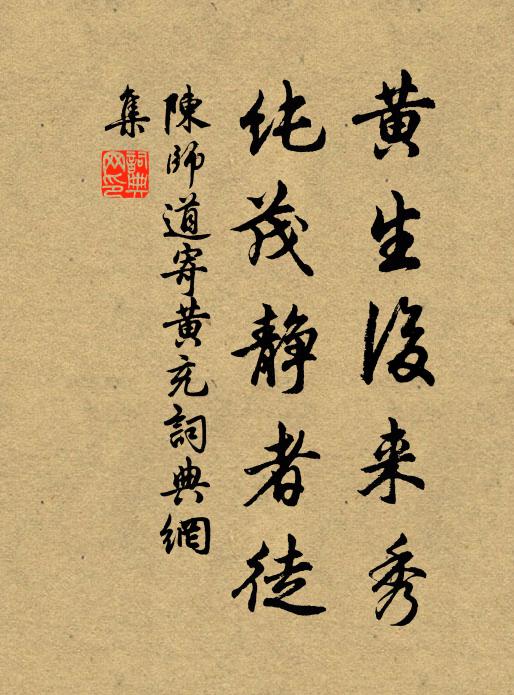 黄生後来秀
纯茂静者徒
陳師道寄黄充詞典網
集
詞典
网印